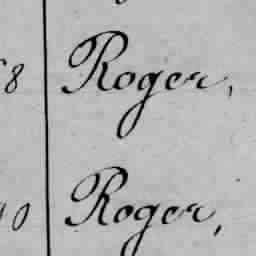 8 Roger,
0 Roger,